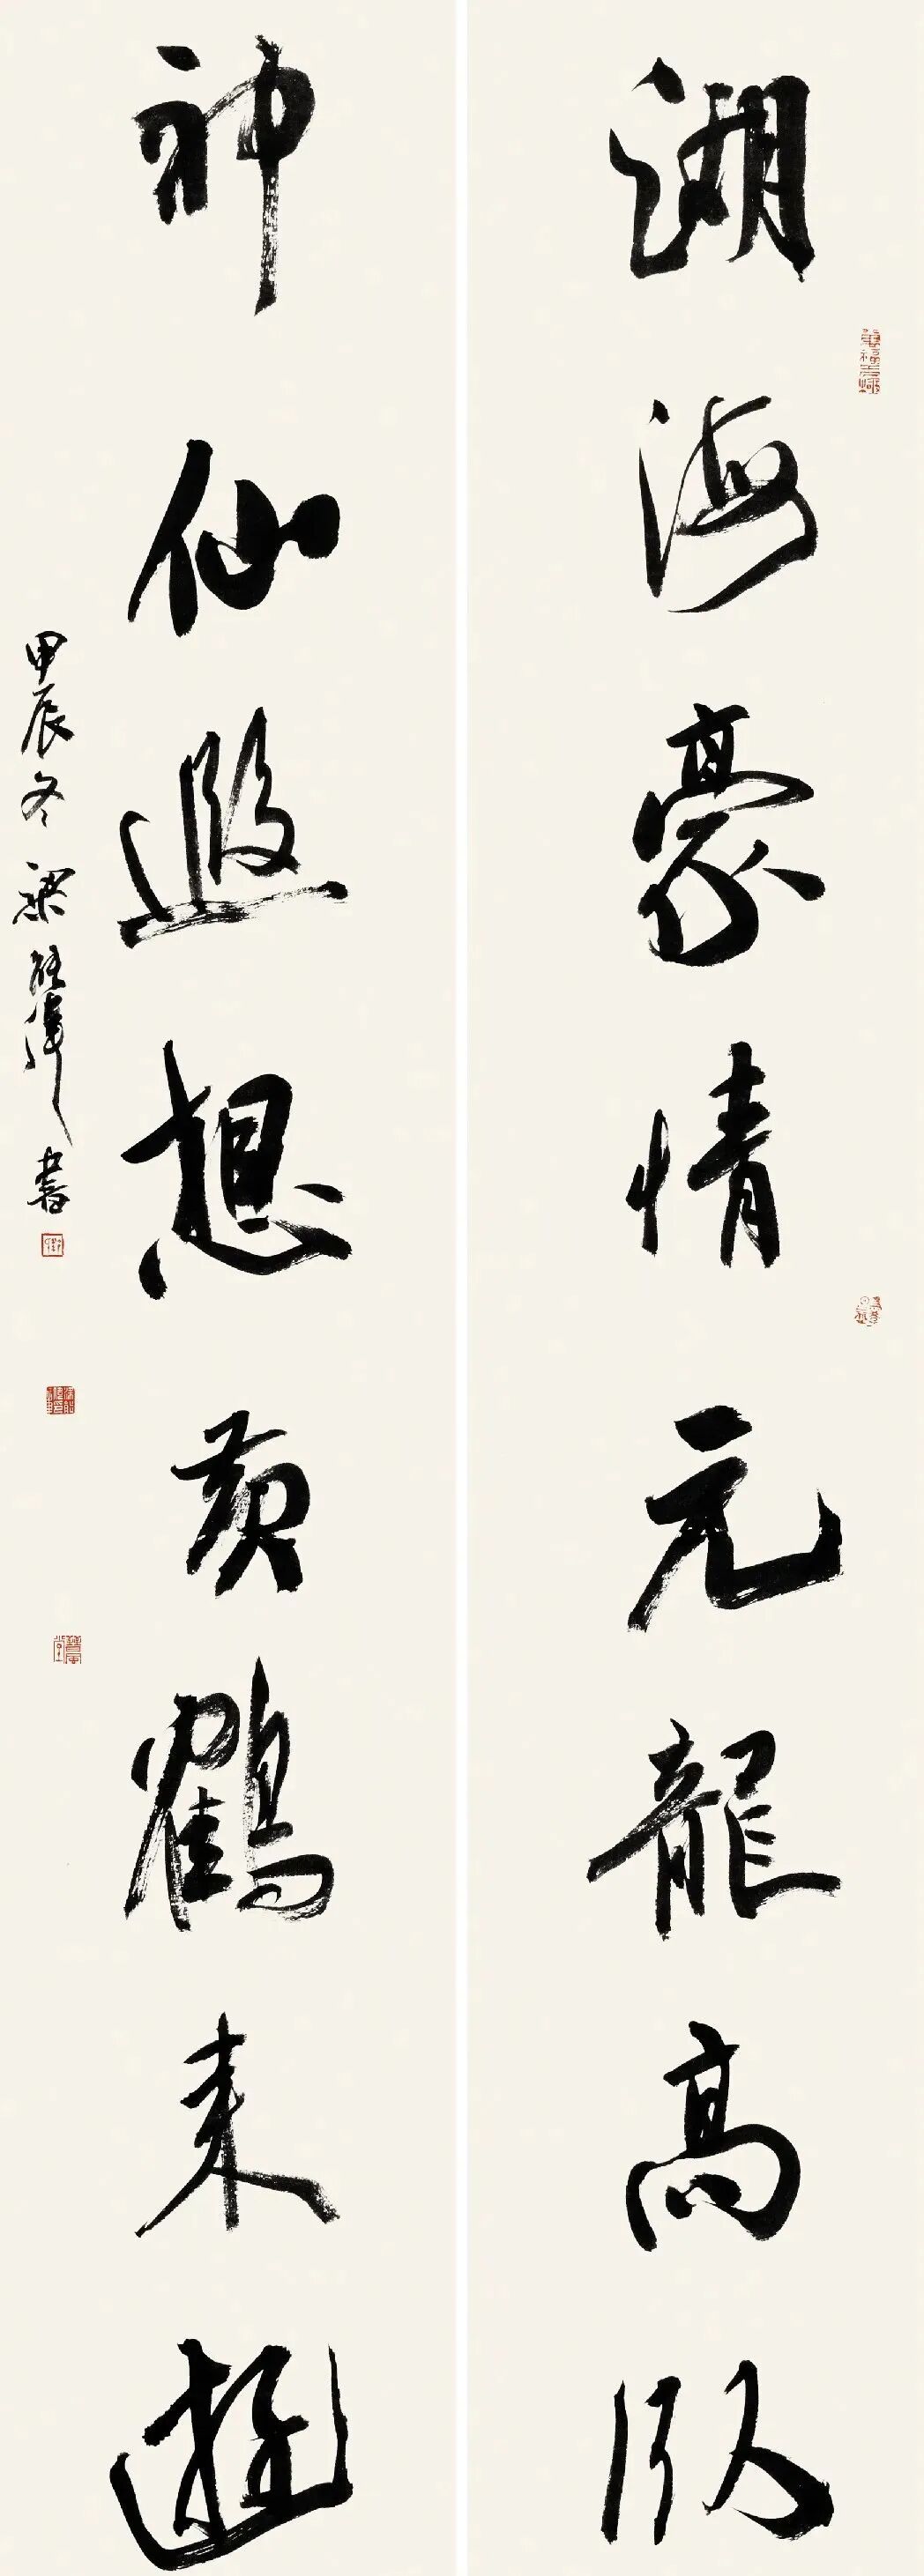 湖海豪情元龍高臥
神仙遐想黃鶴来遊
甲辰冬 梁 書